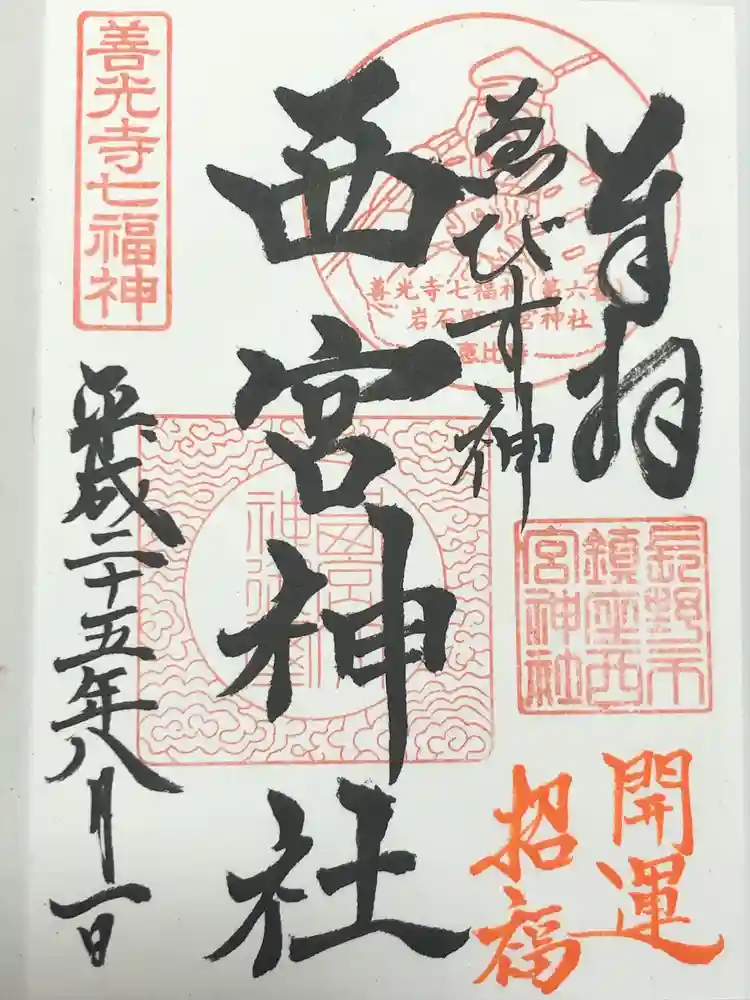 奉拝
ゑびす神
西宮神社
平成二十五年八月一日
開運
招福
善光寺七福神
善光寺七福神(第六番)
岩石町西宮神社
恵比寿
長野市
鎮座西
宮神社